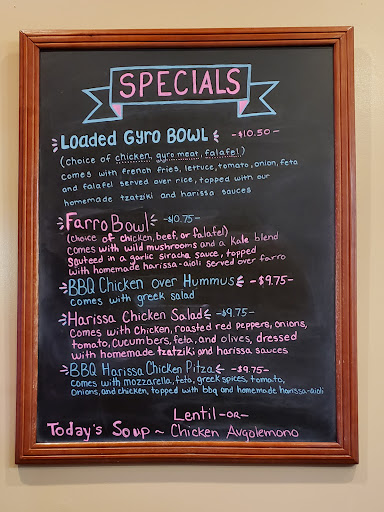 SPECIALS
LOADED GYRO BOWL -$10.50-
(choice of chicken, gyro meat, falafel)
comes with french fries, lettuce, tomato, onion, feta
and falafel served over rice, topped with our
homemade tzatziki and harissa sauces
Farro Bowl -$10.75-
(choice of chicken, beef, or falafel)
comes with wild mushrooms and a kale blend
sauteed in a garlic siracha sauce, topped
with homemade harissa-aioli served over farro
BBQ Chicken over Hummus -$9.75-
comes with greek salad
Harissa Chicken Salad -$9.75-
comes with chicken, roasted red peppers, onions,
tomato, cucumbers, feta, and olives, dressed
with homemade tzatziki and harissa sauces
BBQ Harissa Chicken Pitza -$9.75-
comes with mozzarella, feta, greek spices, tomato,
onions, and chicken, topped with bbq and homemade harissa-aioli
Lentil -OR-
Today's Soup ~ Chicken Avgolemono